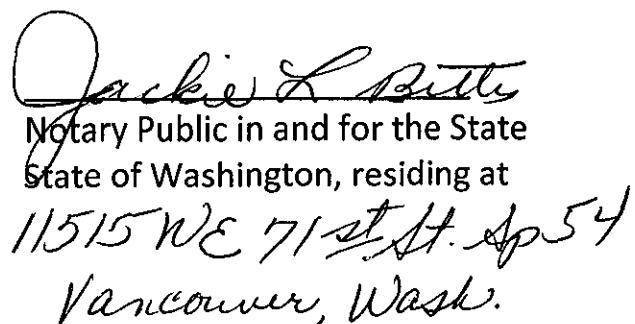 Jackie L Bitts
Notary Public in and for the State
State of Washington, residing at
11515 NE 71st St. Sp 54
Vancouver, Wash.